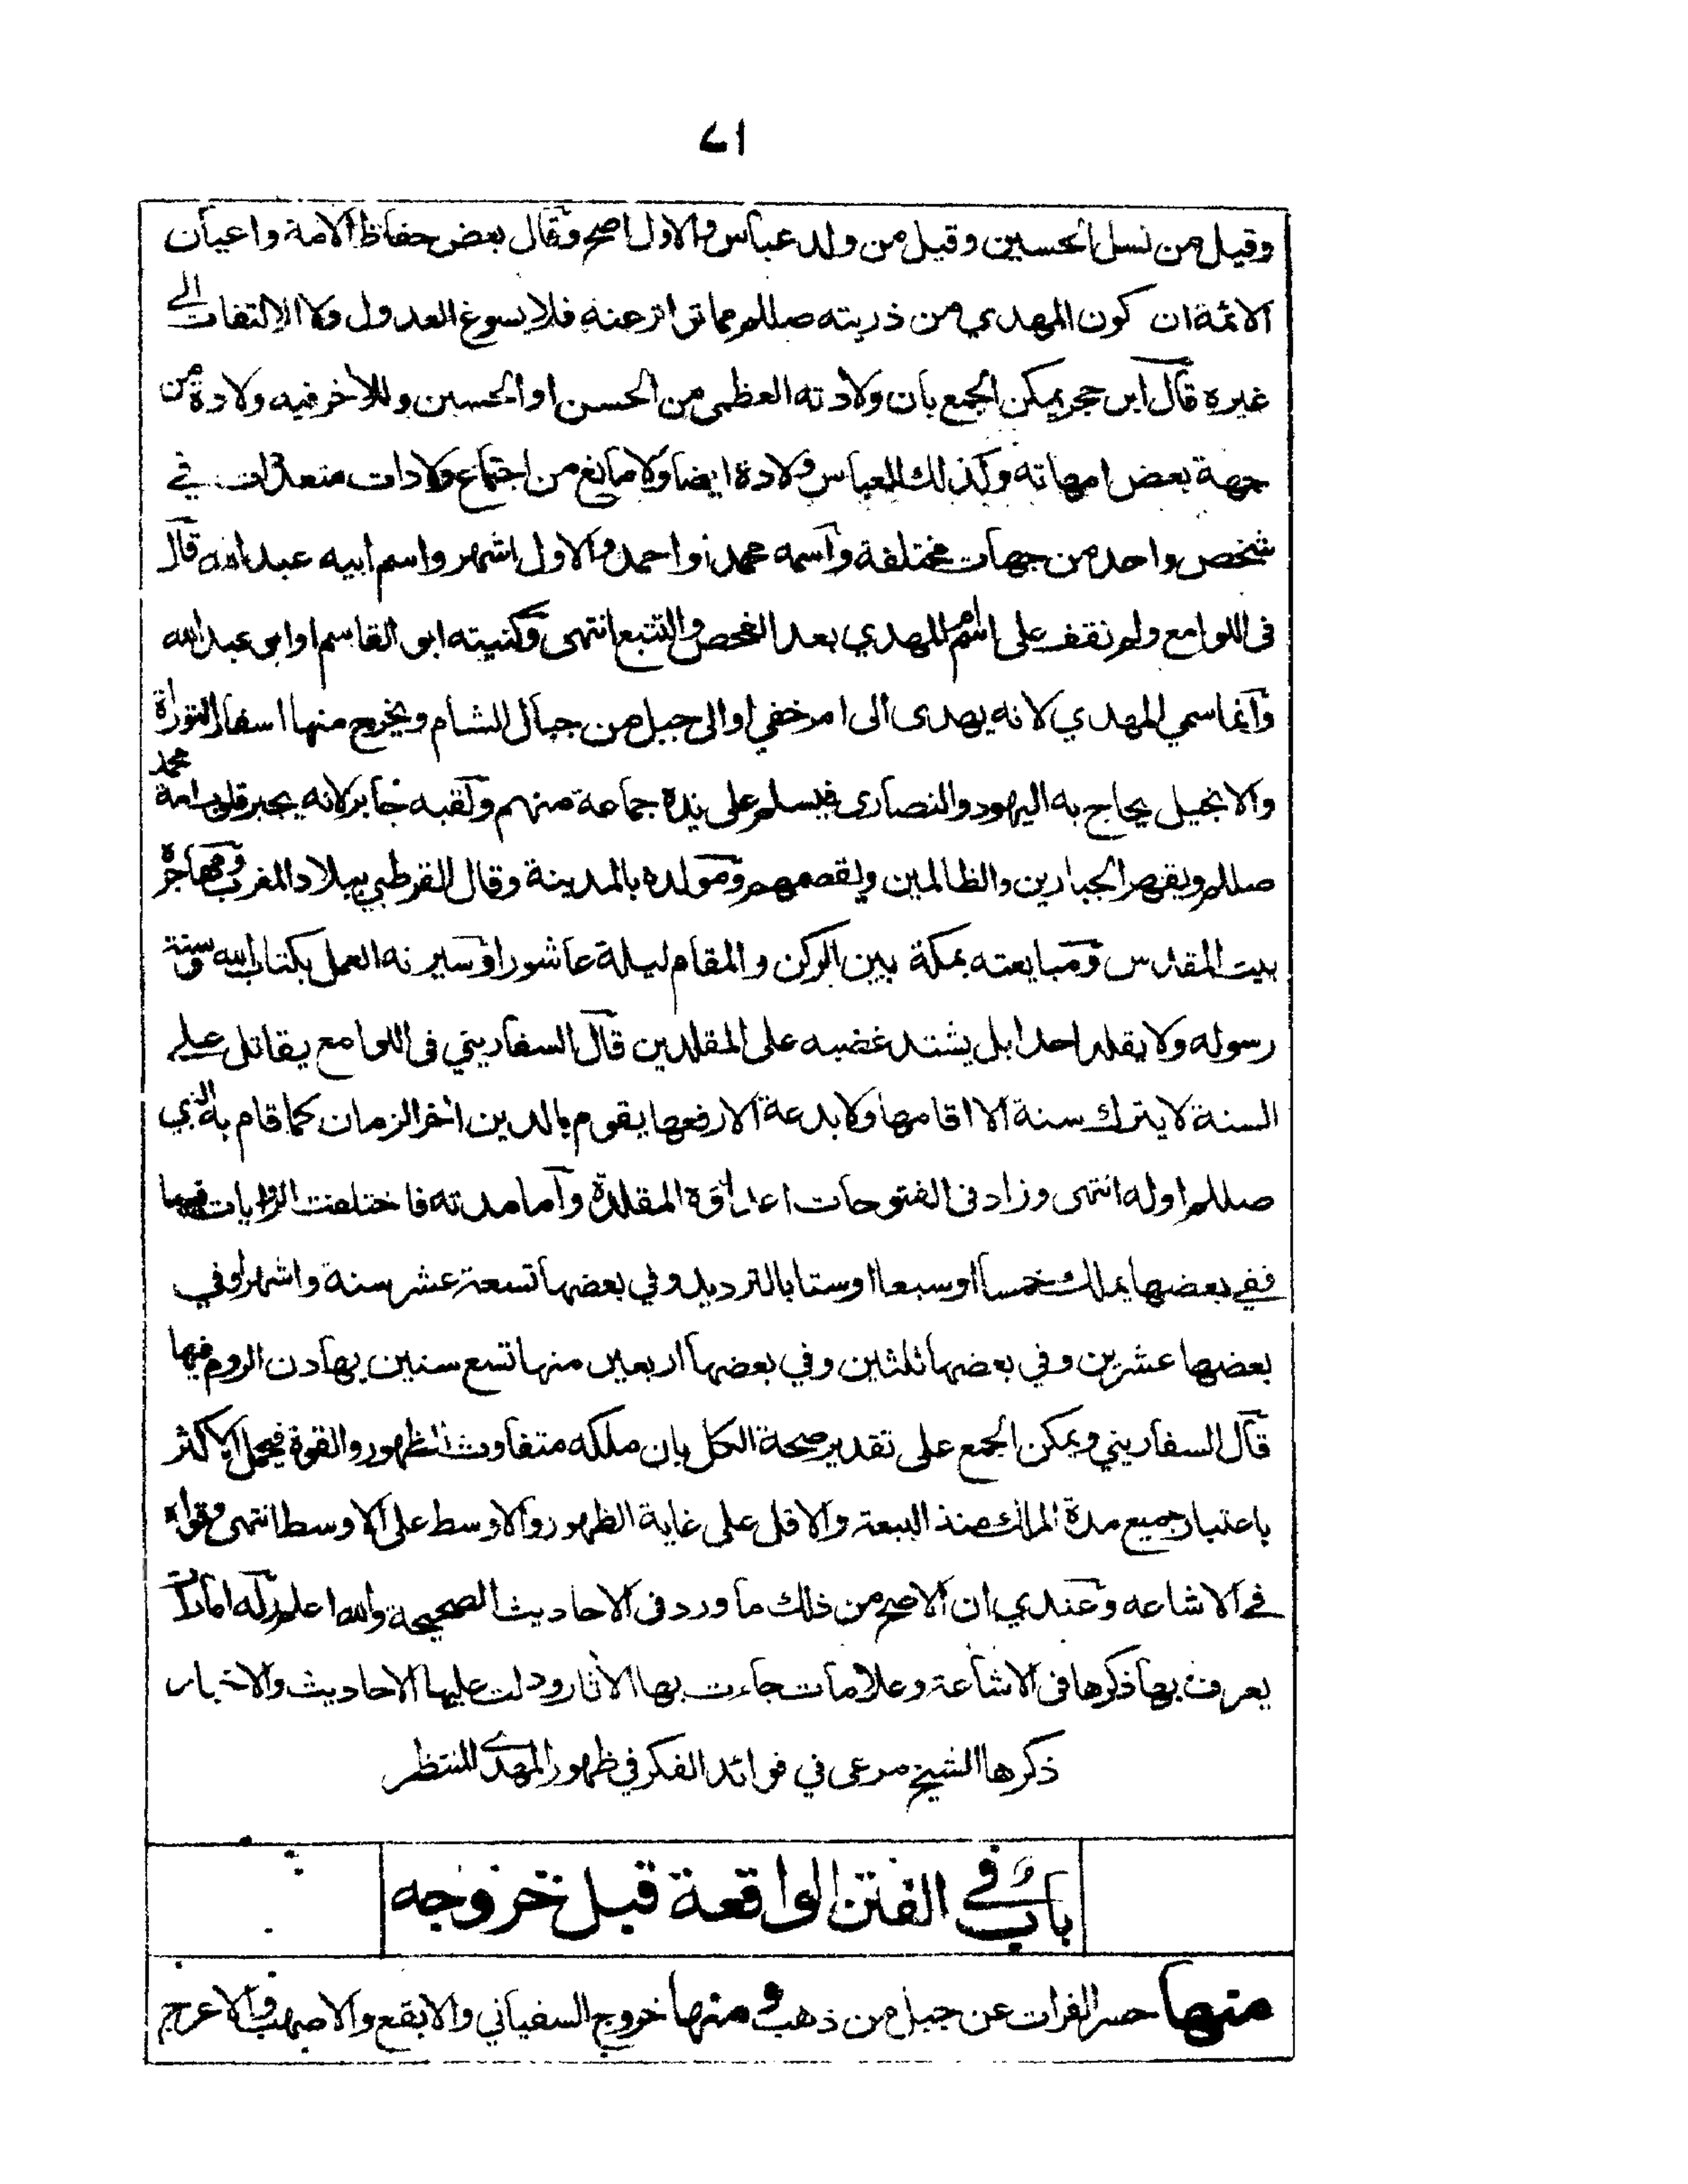 ١٧
وقيل من نسل الحسين وقيل من ولد عباس والاول اصح وقال بعض حفاظ الامة واعيان
الائمة ان كون المهدي من ذريته صللم مما تواتر عنه فلا يسوغ العدول ولا الالتفات الى
غيره قال ابن حجر يمكن الجمع بان ولادته العظمى من الحسن او الحسين وللاخر فيه ولادة من
جهة بعض امهاته وكذلك للعباس ولادة ايضا ولا مانع من اجتماع ولادات متعددات في
شخص واحد من جهات مختلفة واسمه محمد او احمد والاول اشهر واسم ابيه عبد الله قال
فى اللوامع ولم نقف على اسم ام المهدي بعد الفحص والتتبع انتهى وكنيته ابو القاسم او ابو عبد الله
وانما سمي المهدي لانه يهدى الى امر خفي او الى جبل من جبال الشام ويخرج منها اسفار التوراة
والانجيل يحاج به اليهود والنصارى فيسلم على يده جماعة منهم ولقبه جابر لانه يجبر قلوب امة محمد
صللم ويقهر الجبارين والظالمين ويقصمهم ومولده بالمدينة وقال القرطبي ببلاد المغرب ومهاجره
بيت المقدس ومبايعته بمكة بين الركن والمقام ليلة عاشورا وسيرته العمل بكتاب الله وسنة
رسوله ولا يقلد احدا بل يشتد غضبه على المقلدين قال السفاريني فى اللوامع يقاتل على
السنة لا يترك سنة الا اقامها ولا بدعة الا رفعها يقوم بالدين اخر الزمان كما قام به النبي
صللم اوله انتهى وزاد فى الفتوحات اعداؤه المقلدة واما مدته فاختلفت الروايات فيها
ففي بعضها يملك خمسا او سبعا او ستا بالترديد وفي بعضها تسعة عشر سنة واشهرا وفي
بعضها عشرين وفي بعضها ثلثين وفي بعضها اربعين منها تسع سنين يهادن الروم فيها
قال السفاريني ويمكن الجمع على تقدير صحة الكل بان ملكه متفاوت الظهور والقوة فيحمل الاكثر
باعتبار جميع مدة الملك منذ البيعة والاقل على غاية الظهور والاوسط على الاوسط انتهى وقواه
في الاشاعه وعندي ان الاصح من ذلك ما ورد فى الاحاديث الصحيحة والله اعلم وله امارات
يعرف بها ذكرها فى الاشاعة وعلامات جاءت بها الاثار ودلت عليها الاحاديث والاخبار
ذكرها الشيخ مرعى في فوائد الفكر في ظهور المهدى المنتظر
باب في الفتن الواقعة قبل خروجه
منها حسر الفرات عن جبل من ذهب و منها خروج السفياني والابقع والاصهب والاعرج